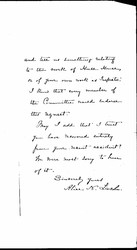 and tell us something relating
to the work of
or of your own work as
I think that every member of
the Committee would endorse
this request.
May I add that I trust
you have recovered entirely
from your recent accident?
I'm more most sorry to hear
of it.
Sincerely yours
Alice N.